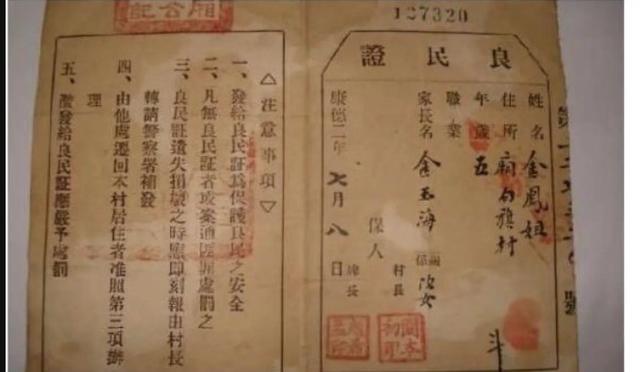 127320
良民證
姓名 金鳳姐
住所 白旗村
年歲 五
職業
家長名 金玉海 關係 次女
保人 村長 牌長
康德二年七月八日
△注意事項▽
一、發給良民証為保護良民之安全
二、凡無良民証者按案通匪嫌處罰之
三、良民証遺失損壞之時應即刻報由村長
轉請警察署補發
四、由他處遷回本村居住者准照第三項辦
理
五、發給良民証應嚴予處罰